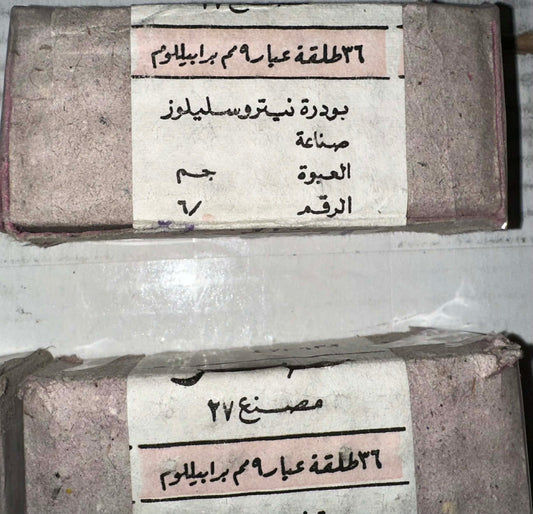 ٣٦ طلقة عيار ٩ مم برابيللوم
بودرة نيتروسليلوز
صناعة
العبوة جم
الرقم /٦
مصنع ٢٧
٣٦ طلقة عيار ٩ مم برابيللوم